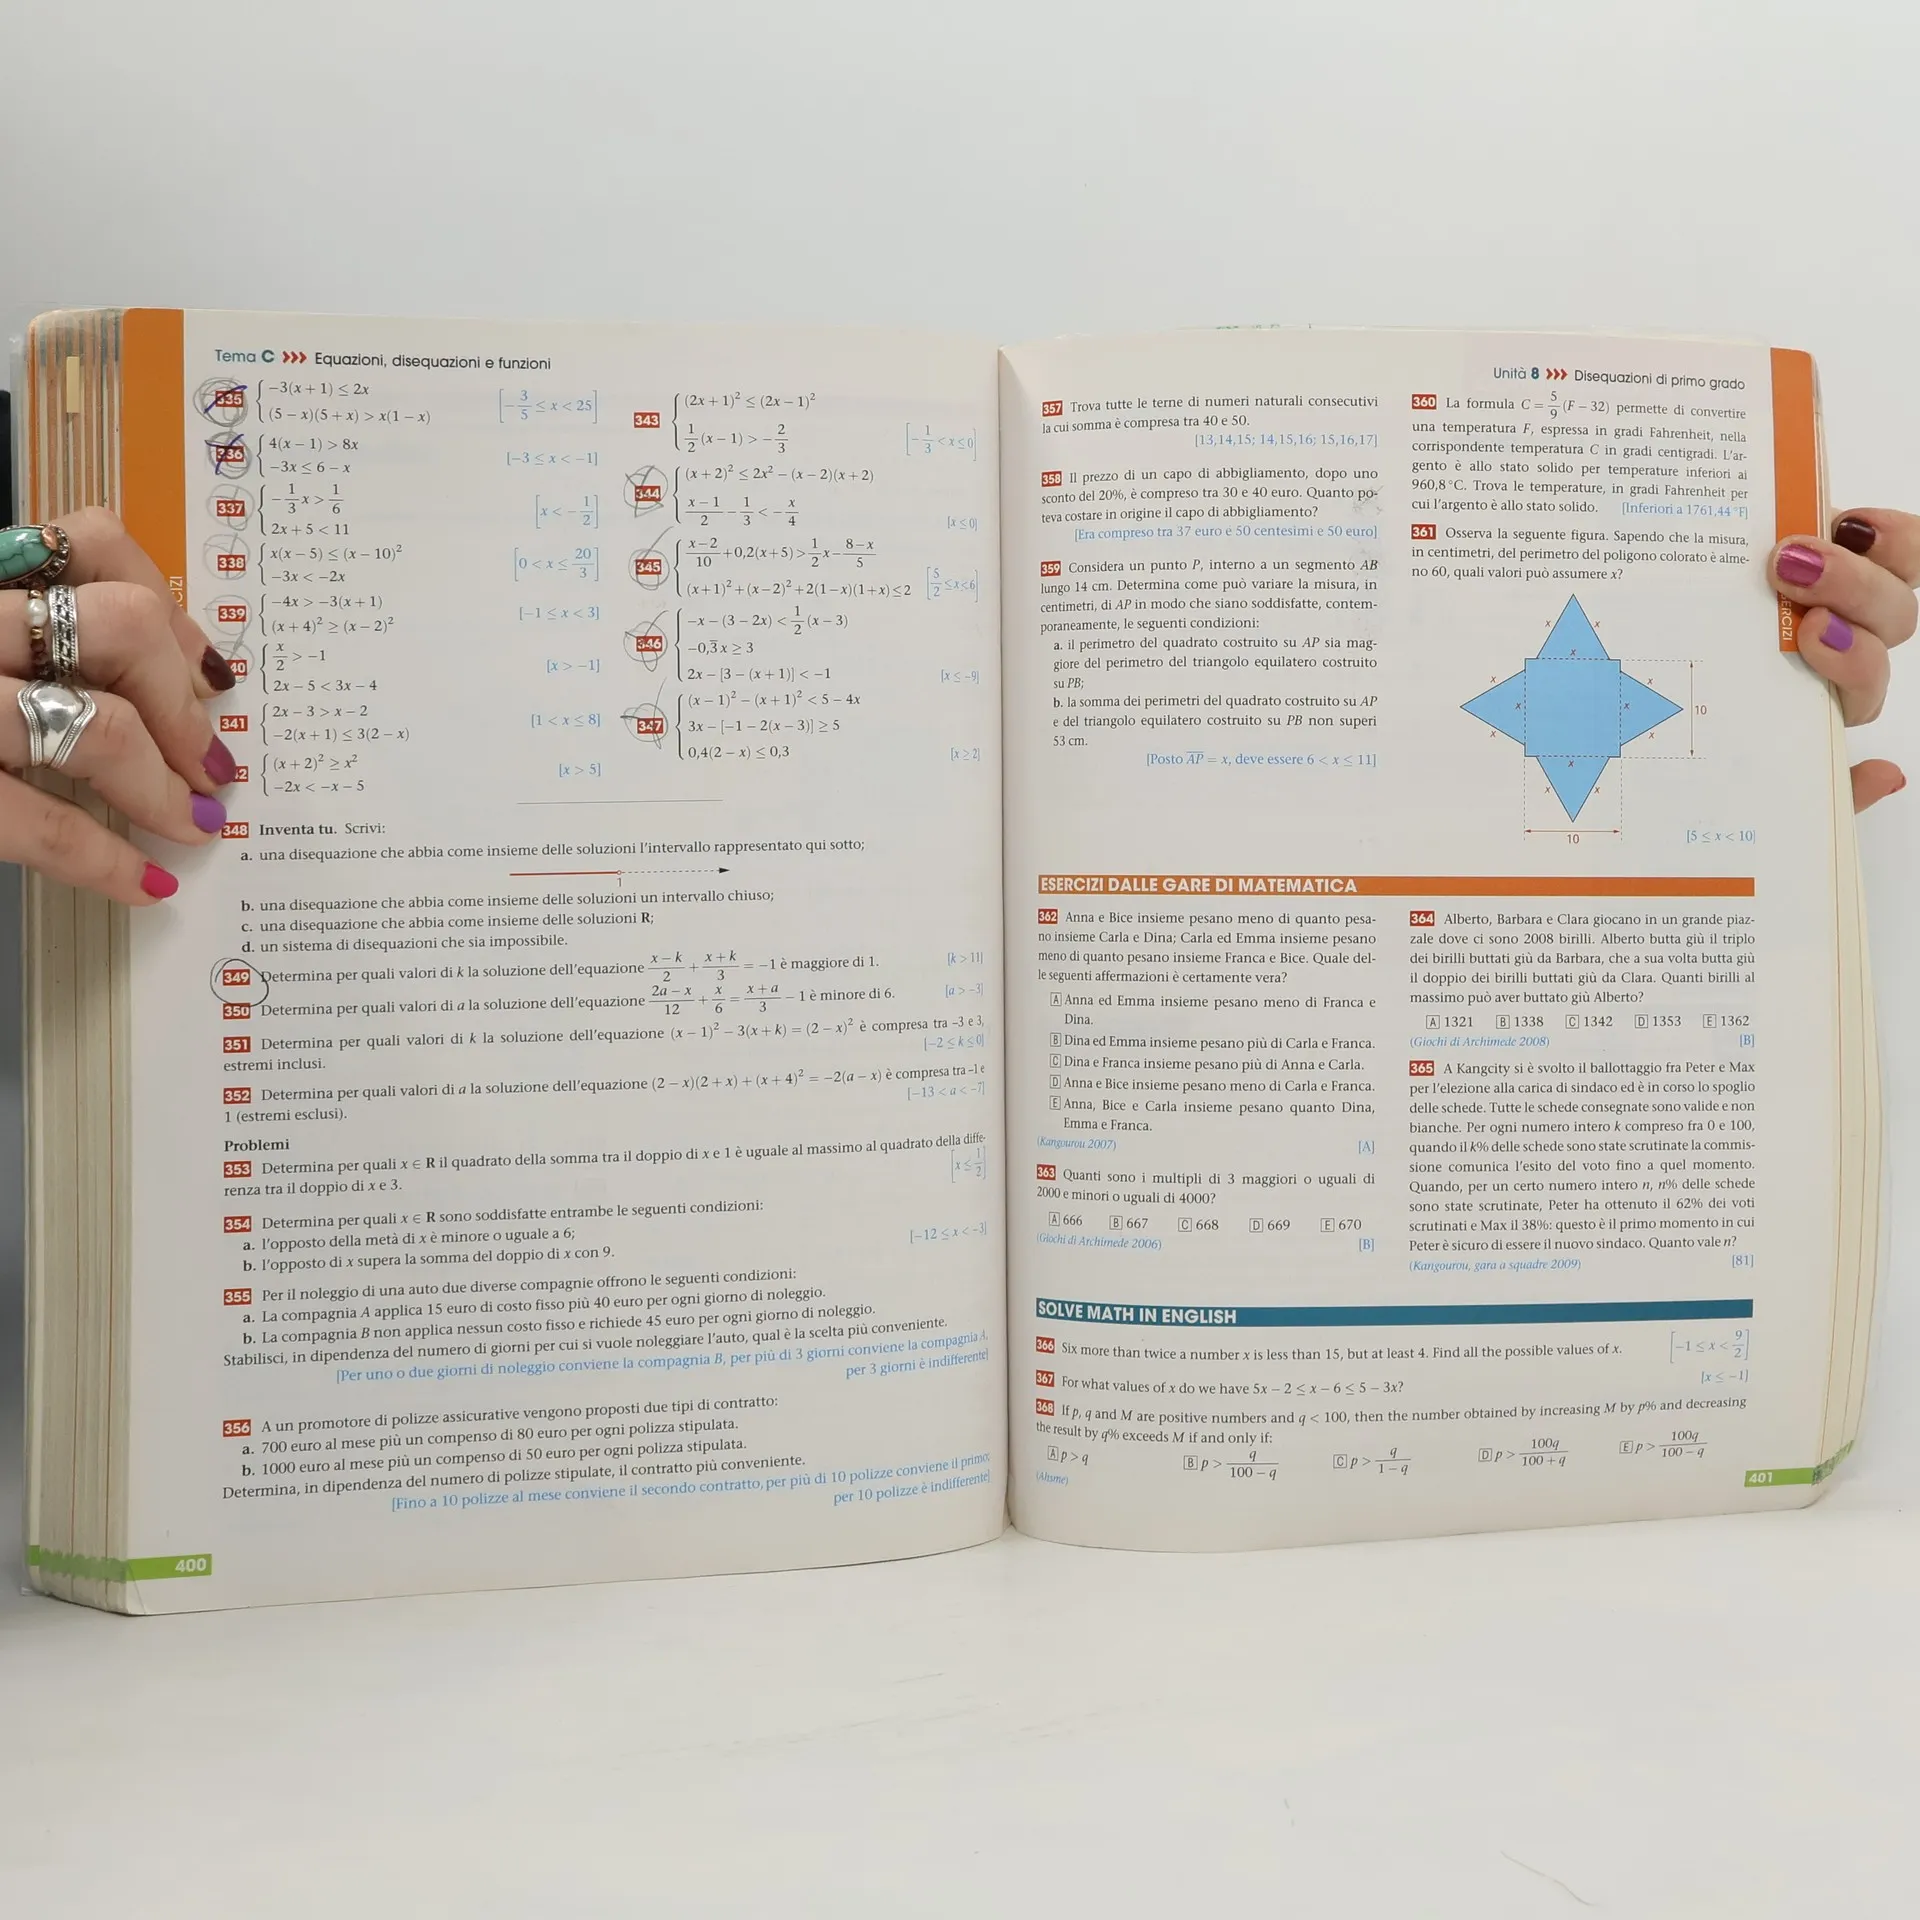 Tema C >>> Equazioni, disequazioni e funzioni
335 { −3(x + 1) ≤ 2x
(5 − x)(5 + x) > x(1 − x) [−3/5 ≤ x < 25]
336 { 4(x − 1) > 8x
−3x ≤ 6 − x [−3 ≤ x < −1]
337 { −1/3 x > 1/6
2x + 5 < 11 [x < −1/2]
338 { x(x − 5) ≤ (x − 10)²
−3x < −2x [0 < x ≤ 20/3]
339 { −4x > −3(x + 1)
(x + 4)² ≥ (x − 2)² [−1 ≤ x < 3]
40 { x/2 > −1
2x − 5 < 3x − 4 [x > −1]
341 { 2x − 3 > x − 2
−2(x + 1) ≤ 3(2 − x) [1 < x ≤ 8]
2 { (x + 2)² ≥ x²
−2x < −x − 5 [x > 5]
343 { (2x + 1)² ≤ (2x − 1)²
1/2 (x − 1) > −2/3 [−1/3 < x ≤ 0]
344 { (x + 2)² ≤ 2x² − (x − 2)(x + 2)
x − 1/2 − 1/3 < −x/4 [x ≤ 0]
345 { x − 2/10 + 0,2(x + 5) > 1/2 x − 8 − x/5
(x + 1)² + (x − 2)² + 2(1 − x)(1 + x) ≤ 2 [5/2 ≤ x < 6]
346 { −x − (3 − 2x) < 1/2 (x − 3)
−0,3̅ x ≥ 3
2x − [3 − (x + 1)] < −1 [x ≤ −9]
347 { (x − 1)² − (x + 1)² < 5 − 4x
3x − [−1 − 2(x − 3)] ≥ 5
0,4(2 − x) ≤ 0,3 [x ≥ 2]
348 Inventa tu. Scrivi:
a. una disequazione che abbia come insieme delle soluzioni l'intervallo rappresentato qui sotto;
1
b. una disequazione che abbia come insieme delle soluzioni un intervallo chiuso;
c. una disequazione che abbia come insieme delle soluzioni R;
d. un sistema di disequazioni che sia impossibile.
349 Determina per quali valori di k la soluzione dell'equazione x − k/2 + x + k/3 = −1 è maggiore di 1. [k > 11]
350 Determina per quali valori di a la soluzione dell'equazione 2a − x/12 + x/6 = x + a/3 − 1 è minore di 6. [a > −3]
351 Determina per quali valori di k la soluzione dell'equazione (x − 1)² − 3(x + k) = (2 − x)² è compresa tra −3 e 3,
estremi inclusi. [−2 ≤ k ≤ 0]
352 Determina per quali valori di a la soluzione dell'equazione (2 − x)(2 + x) + (x + 4)² = −2(a − x) è compresa tra −1 e
1 (estremi esclusi). [−13 < a < −7]
Problemi
353 Determina per quali x ∈ R il quadrato della somma tra il doppio di x e 1 è uguale al massimo al quadrato della diffe-
renza tra il doppio di x e 3. [x ≤ 1/2]
354 Determina per quali x ∈ R sono soddisfatte entrambe le seguenti condizioni:
a. l'opposto della metà di x è minore o uguale a 6;
b. l'opposto di x supera la somma del doppio di x con 9. [−12 ≤ x < −3]
355 Per il noleggio di una auto due diverse compagnie offrono le seguenti condizioni:
a. La compagnia A applica 15 euro di costo fisso più 40 euro per ogni giorno di noleggio.
b. La compagnia B non applica nessun costo fisso e richiede 45 euro per ogni giorno di noleggio.
Stabilisci, in dipendenza del numero di giorni per cui si vuole noleggiare l'auto, qual è la scelta più conveniente.
[Per uno o due giorni di noleggio conviene la compagnia B, per più di 3 giorni conviene la compagnia A,
per 3 giorni è indifferente]
356 A un promotore di polizze assicurative vengono proposti due tipi di contratto:
a. 700 euro al mese più un compenso di 80 euro per ogni polizza stipulata.
b. 1000 euro al mese più un compenso di 50 euro per ogni polizza stipulata.
Determina, in dipendenza del numero di polizze stipulate, il contratto più conveniente.
[Fino a 10 polizze al mese conviene il secondo contratto, per più di 10 polizze conviene il primo;
per 10 polizze è indifferente]
400
Unità 8 >>> Disequazioni di primo grado
357 Trova tutte le terne di numeri naturali consecutivi
la cui somma è compresa tra 40 e 50.
[13,14,15; 14,15,16; 15,16,17]
358 Il prezzo di un capo di abbigliamento, dopo uno
sconto del 20%, è compreso tra 30 e 40 euro. Quanto po-
teva costare in origine il capo di abbigliamento?
[Era compreso tra 37 euro e 50 centesimi e 50 euro]
359 Considera un punto P, interno a un segmento AB
lungo 14 cm. Determina come può variare la misura, in
centimetri, di AP in modo che siano soddisfatte, contem-
poraneamente, le seguenti condizioni:
a. il perimetro del quadrato costruito su AP sia mag-
giore del perimetro del triangolo equilatero costruito
su PB;
b. la somma dei perimetri del quadrato costruito su AP
e del triangolo equilatero costruito su PB non superi
53 cm.
[Posto A̅P̅ = x, deve essere 6 < x ≤ 11]
360 La formula C = 5/9 (F − 32) permette di convertire
una temperatura F, espressa in gradi Fahrenheit, nella
corrispondente temperatura C in gradi centigradi. L'ar-
gento è allo stato solido per temperature inferiori ai
960,8 °C. Trova le temperature, in gradi Fahrenheit per
cui l'argento è allo stato solido. [Inferiori a 1761,44 °F]
361 Osserva la seguente figura. Sapendo che la misura,
in centimetri, del perimetro del poligono colorato è alme-
no 60, quali valori può assumere x?
x x
x
x x
x x 10
x x
x
x x
10 [5 ≤ x < 10]
ESERCIZI DALLE GARE DI MATEMATICA
362 Anna e Bice insieme pesano meno di quanto pesa-
no insieme Carla e Dina; Carla ed Emma insieme pesano
meno di quanto pesano insieme Franca e Bice. Quale del-
le seguenti affermazioni è certamente vera?
A Anna ed Emma insieme pesano meno di Franca e
Dina.
B Dina ed Emma insieme pesano più di Carla e Franca.
C Dina e Franca insieme pesano più di Anna e Carla.
D Anna e Bice insieme pesano meno di Carla e Franca.
E Anna, Bice e Carla insieme pesano quanto Dina,
Emma e Franca.
(Kangourou 2007) [A]
363 Quanti sono i multipli di 3 maggiori o uguali di
2000 e minori o uguali di 4000?
A 666 B 667 C 668 D 669 E 670
(Giochi di Archimede 2006) [B]
364 Alberto, Barbara e Clara giocano in un grande piaz-
zale dove ci sono 2008 birilli. Alberto butta giù il triplo
dei birilli buttati giù da Barbara, che a sua volta butta giù
il doppio dei birilli buttati giù da Clara. Quanti birilli al
massimo può aver buttato giù Alberto?
A 1321 B 1338 C 1342 D 1353 E 1362
(Giochi di Archimede 2008) [B]
365 A Kangcity si è svolto il ballottaggio fra Peter e Max
per l'elezione alla carica di sindaco ed è in corso lo spoglio
delle schede. Tutte le schede consegnate sono valide e non
bianche. Per ogni numero intero k compreso fra 0 e 100,
quando il k% delle schede sono state scrutinate la commis-
sione comunica l'esito del voto fino a quel momento.
Quando, per un certo numero intero n, n% delle schede
sono state scrutinate, Peter ha ottenuto il 62% dei voti
scrutinati e Max il 38%: questo è il primo momento in cui
Peter è sicuro di essere il nuovo sindaco. Quanto vale n?
(Kangourou, gara a squadre 2009) [81]
SOLVE MATH IN ENGLISH
366 Six more than twice a number x is less than 15, but at least 4. Find all the possible values of x. [−1 ≤ x < 9/2]
367 For what values of x do we have 5x − 2 ≤ x − 6 ≤ 5 − 3x? [x ≤ −1]
368 If p, q and M are positive numbers and q < 100, then the number obtained by increasing M by p% and decreasing
the result by q% exceeds M if and only if:
A p > q B p > q/100 − q C p > q/1 − q D p > 100q/100 + q E p > 100q/100 − q
(Ahsme)
401
ERCIZI